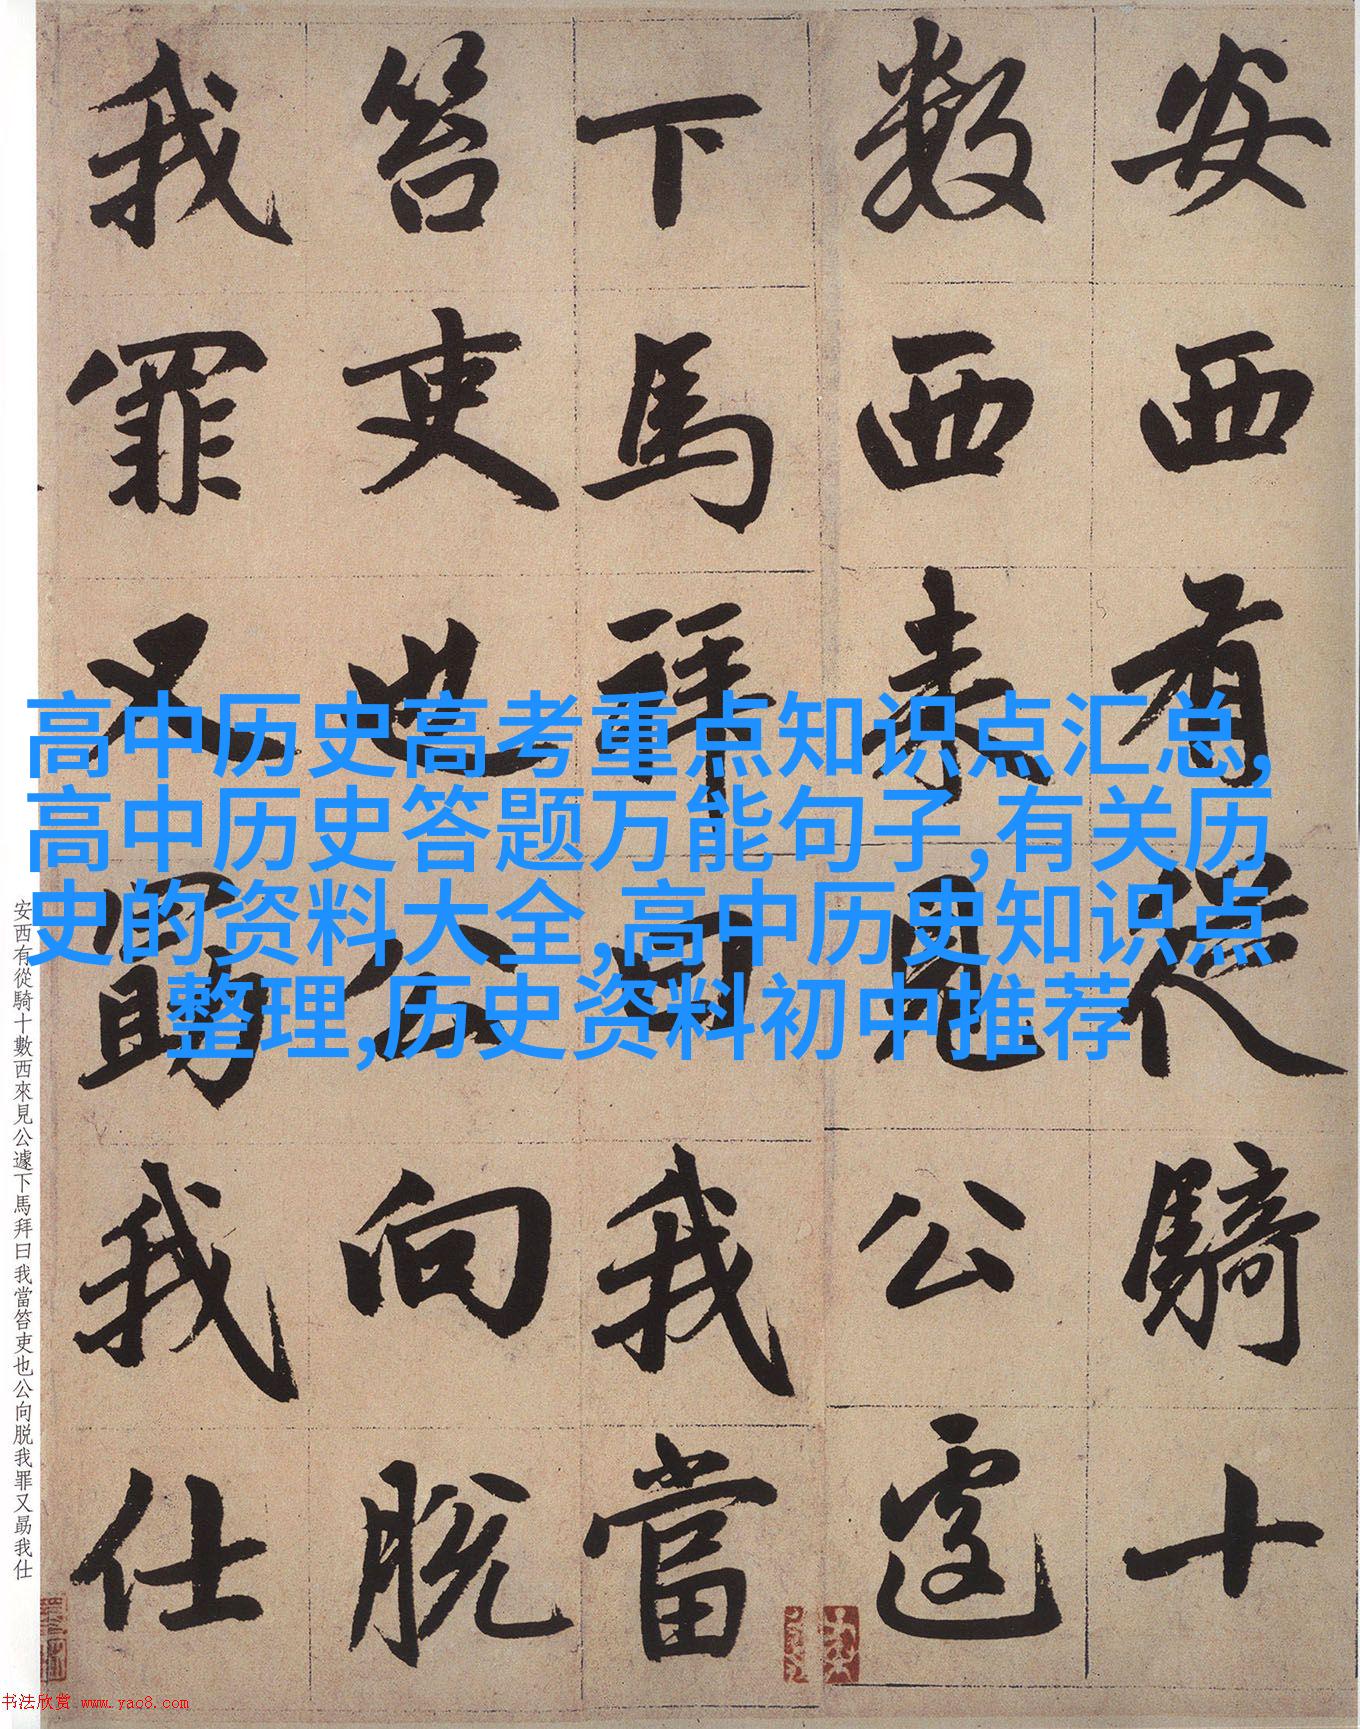 安西有從騎十
数西来見公遽
下馬拜曰我當
笞吏也公向脱
我罪又勗我仕
高中历史高考重点知识点汇总,
高中历史答题万能句子,有关历
史的资料大全,高中历史知识点
整理,历史资料初中推荐
安西有從騎十數西來見公遽下馬拜曰我當笞吏也公向脱我罪又勗我仕
书法欣赏 www.yac8.com